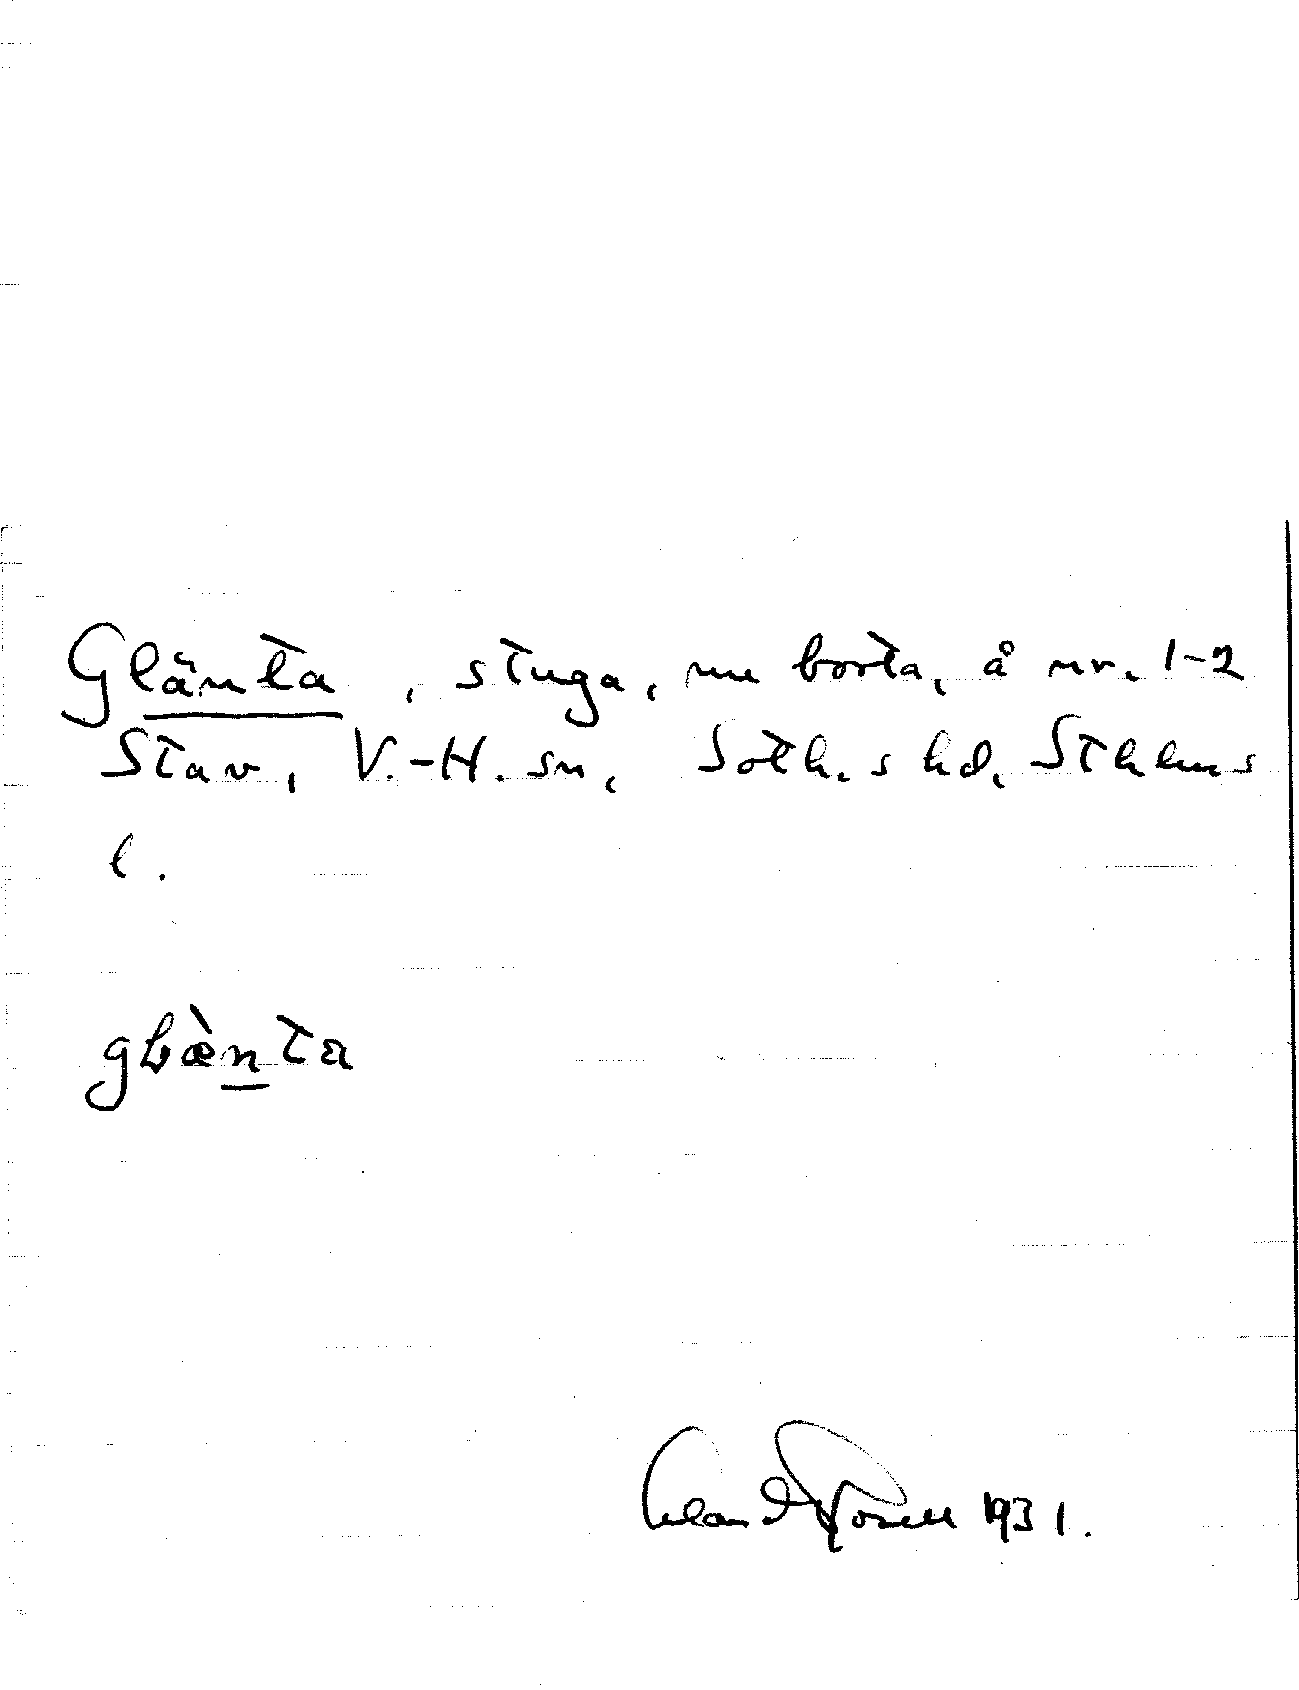 Glänta, stuga, nu borta, å nr. 1-2
Stav, V.-H. sn, Soth.s hd, Sthlms
l.
gɫæ̀nta
Erland Rosell 1931.